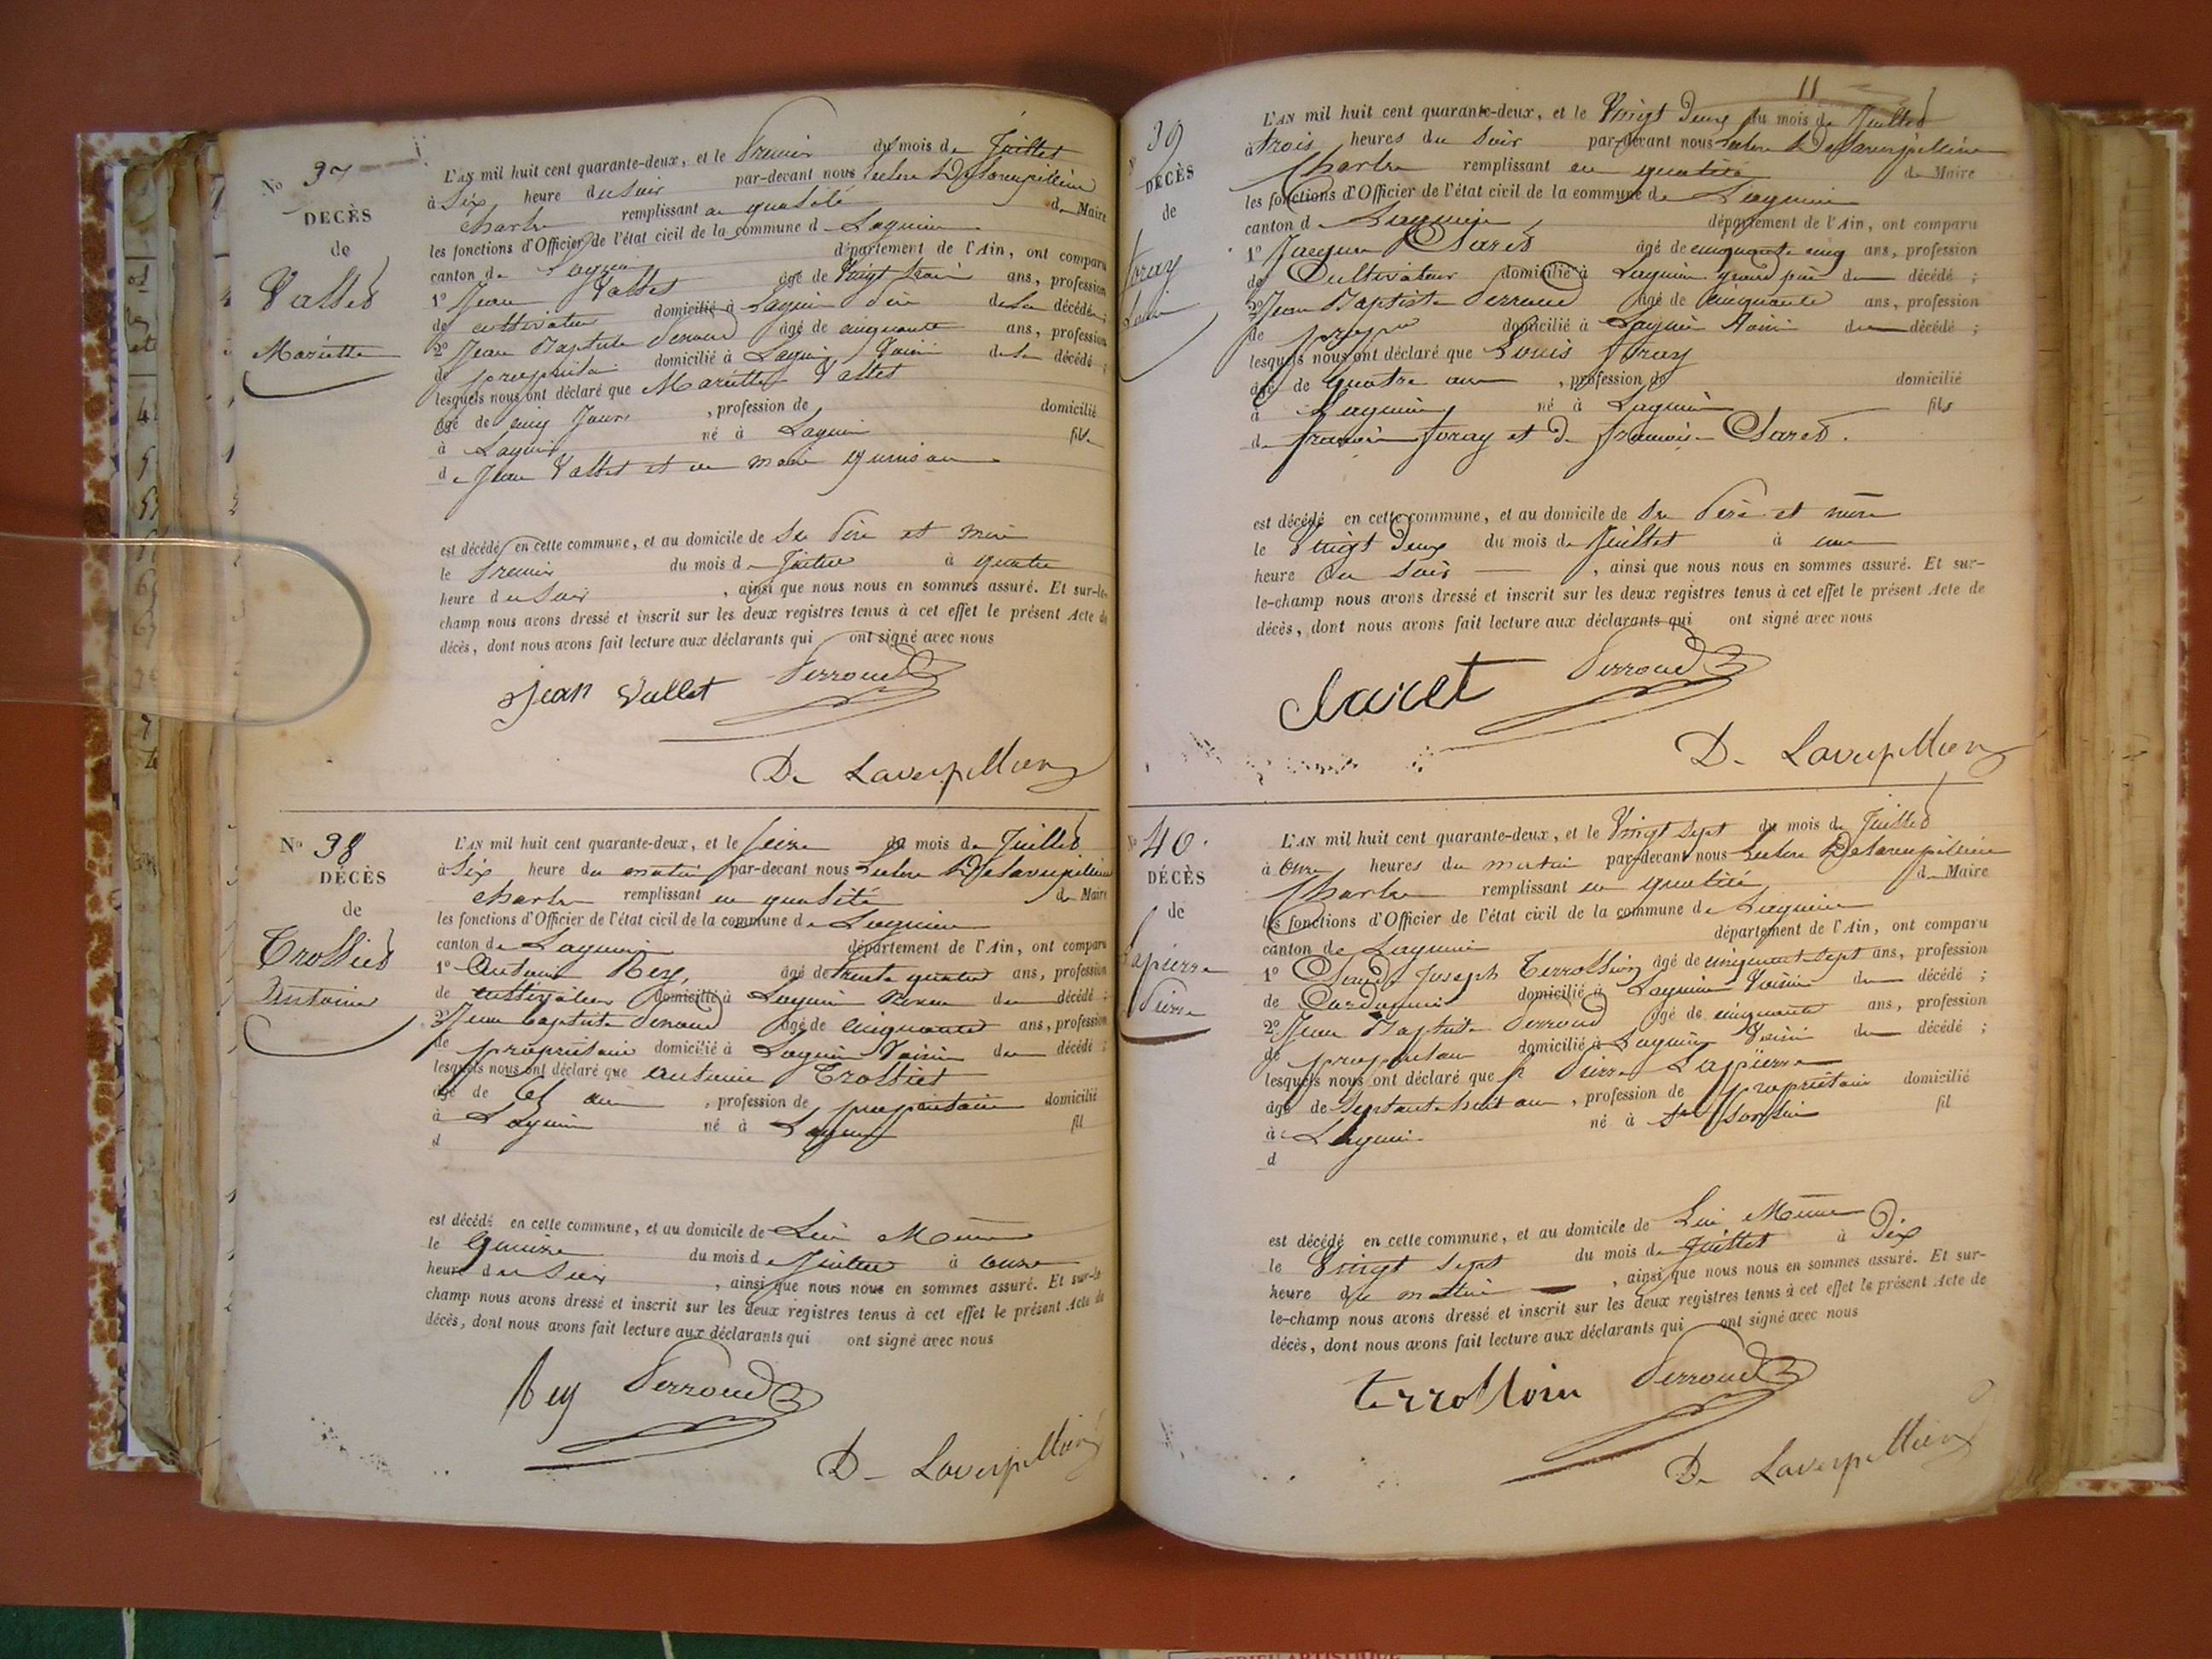 Nº 37
DECÈS
de
Vallet
Mariette
L'AN mil huit cent quarante-deux, et le Premier du mois de Juillet
à Six heure du Soir par-devant nous
Charles remplissant en qualité de Maire
les fonctions d'Officier de l'état civil de la commune d Lagnieu
canton de Lagnieu département de l'Ain, ont comparu
1º Jean Vallet âgé de Vingt ans, profession
de cultivateur domicilié à Lagnieu Père de la décédée ;
2º Jean Baptiste Perroud âgé de cinquante ans, profession
de propriétaire domicilié à Lagnieu Voisin de la décédé ;
lesquels nous ont déclaré que Mariette Vallet
âgé de cinq Jours , profession de domicilié
à Lagnieu né à Lagnieu fille
de Jean Vallet et de marie
est décédé en cette commune, et au domicile de Ses Père et mère
le Premier du mois de Juillet à quatre
heure du Soir , ainsi que nous nous en sommes assuré. Et sur-le-
champ nous avons dressé et inscrit sur les deux registres tenus à cet effet le présent Acte de
décès, dont nous avons fait lecture aux déclarants qui ont signé avec nous
Jean Vallet Perroud
De Laverpillière
Nº 38
DÉCÈS
de
Trolliet
Antoine
L'AN mil huit cent quarante-deux, et le Seize du mois de Juillet
à Six heure du matin par-devant nous
Charles remplissant en qualité de Maire
les fonctions d'Officier de l'état civil de la commune de Lagnieu
canton de Lagnieu département de l'Ain, ont comparu
1º Antoine Rey, âgé de trente quatre ans, profession
de cultivateur domicilié à Lagnieu Neveu du décédé ;
2º Jean Baptiste Perroud âgé de cinquante ans, profession
de propriétaire domicilié à Lagnieu Voisin du décédé ;
lesquels nous ont déclaré que Antoine Trolliet
âgé de 61 ans , profession de propriétaire domicilié
à Lagnieu né à Lagnieu fil
d
est décédé en cette commune, et au domicile de Lui Même
le quinze du mois de Juillet à onze
heure du Soir , ainsi que nous nous en sommes assuré. Et sur-le
champ nous avons dressé et inscrit sur les deux registres tenus à cet effet le présent Acte de
décès, dont nous avons fait lecture aux déclarants qui ont signé avec nous
Rey Perroud
De Laverpillière
11
Nº 39
DÉCÈS
de
foray
Louis
L'AN mil huit cent quarante-deux, et le Vingt Deux du mois de Juillet
à trois heures du Soir par-devant nous
Charles remplissant en qualité de Maire
les fonctions d'Officier de l'état civil de la commune de Lagnieu
canton d Lagnieu département de l'Ain, ont comparu
1º Jacques Claret âgé de cinquante cinq ans, profession
de Cultivateur domicilié à Lagnieu grand père du décédé ;
2º Jean Baptiste Perroud âgé de cinquante ans, profession
de domicilié à Lagnieu Voisin du décédé ;
lesquels nous ont déclaré que Louis foray
âgé de quatre ans , profession de domicilié
à Lagnieu né à Lagnieu fils
de françois foray et De françoise Claret.
est décédé en cette commune, et au domicile de Ses Père et mère
le Vingt Deux du mois de Juillet à une
heure du Soir , ainsi que nous nous en sommes assuré. Et sur-
le-champ nous avons dressé et inscrit sur les deux registres tenus à cet effet le présent Acte de
décès, dont nous avons fait lecture aux déclarants qui ont signé avec nous
Claret Perroud
De Laverpillière
Nº 40.
DÉCÈS
de
Lapierre
Pierre
L'AN mil huit cent quarante-deux, et le Vingt Sept du mois de Juillet
à onze heures du matin par-devant nous
Charles remplissant en qualité de Maire
les fonctions d'Officier de l'état civil de la commune de Lagnieu
canton de Lagnieu département de l'Ain, ont comparu
1º Claude Joseph âgé de cinquante sept ans, profession
de Cordonnier domicilié à Lagnieu Voisin du décédé ;
2º Jean Baptiste Perroud âgé de cinquante ans, profession
de propriétaire domicilié à Lagnieu Voisin du décédé ;
lesquels nous ont déclaré que Pierre Lapierre
âgé de Septante huit ans , profession de propriétaire domicilié
à Lagnieu né à St Sorlin fil
d
est décédé en cette commune, et au domicile de Lui Même
le Vingt Sept du mois de Juillet à Dix
heure du mattin , ainsi que nous nous en sommes assuré. Et sur-
le-champ nous avons dressé et inscrit sur les deux registres tenus à cet effet le présent Acte de
décès, dont nous avons fait lecture aux déclarants qui ont signé avec nous
Perroud
De Laverpillière